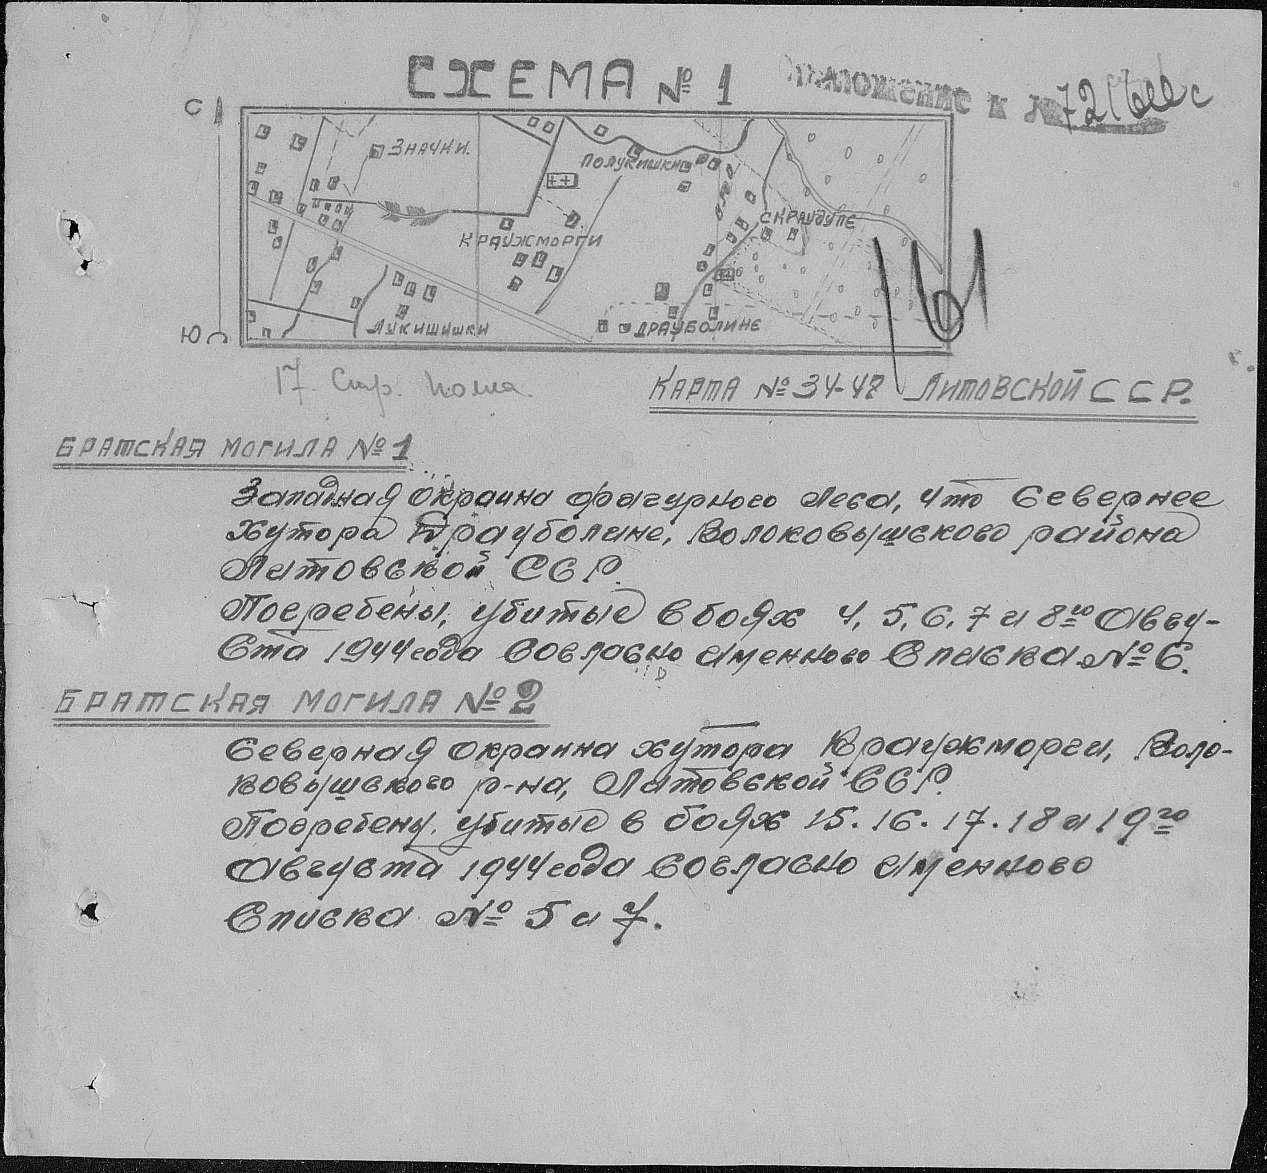 СХЕМА № 1
Приложение к №
С
ЗНАЧКИ.
ПОЛУКИШКИ
СКРАУДУПЕ
КРАУЖМОРГИ
ЛУКИШИШКИ
ДРАУБОЛИНЕ
Ю
161
17. Стр.
КАРТА № 34-47 ЛИТОВСКОЙ ССР.
БРАТСКАЯ МОГИЛА № 1
Западная окраина фигурного леса, что севернее
хутора Драуболине, Волоковышского района
Литовской ССР.
Погребены, убитые в боях 4, 5, 6, 7 и 8го Авгу-
ста 1944 года согласно именного списка № 6.
БРАТСКАЯ МОГИЛА № 2
Северная окраина хутора Краужморги, Воло-
ковышского р-на, Литовской ССР.
Погребены, убитые в боях 15. 16. 17. 18 и 19го
Августа 1944 года согласно именного
списка № 5 и 7.